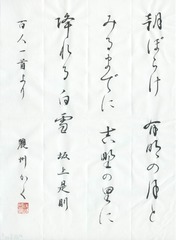 朝ぼらけ 有明の月と
みるまでに 吉野の里に
降れる白雪 坂上是則
百人一首より かく